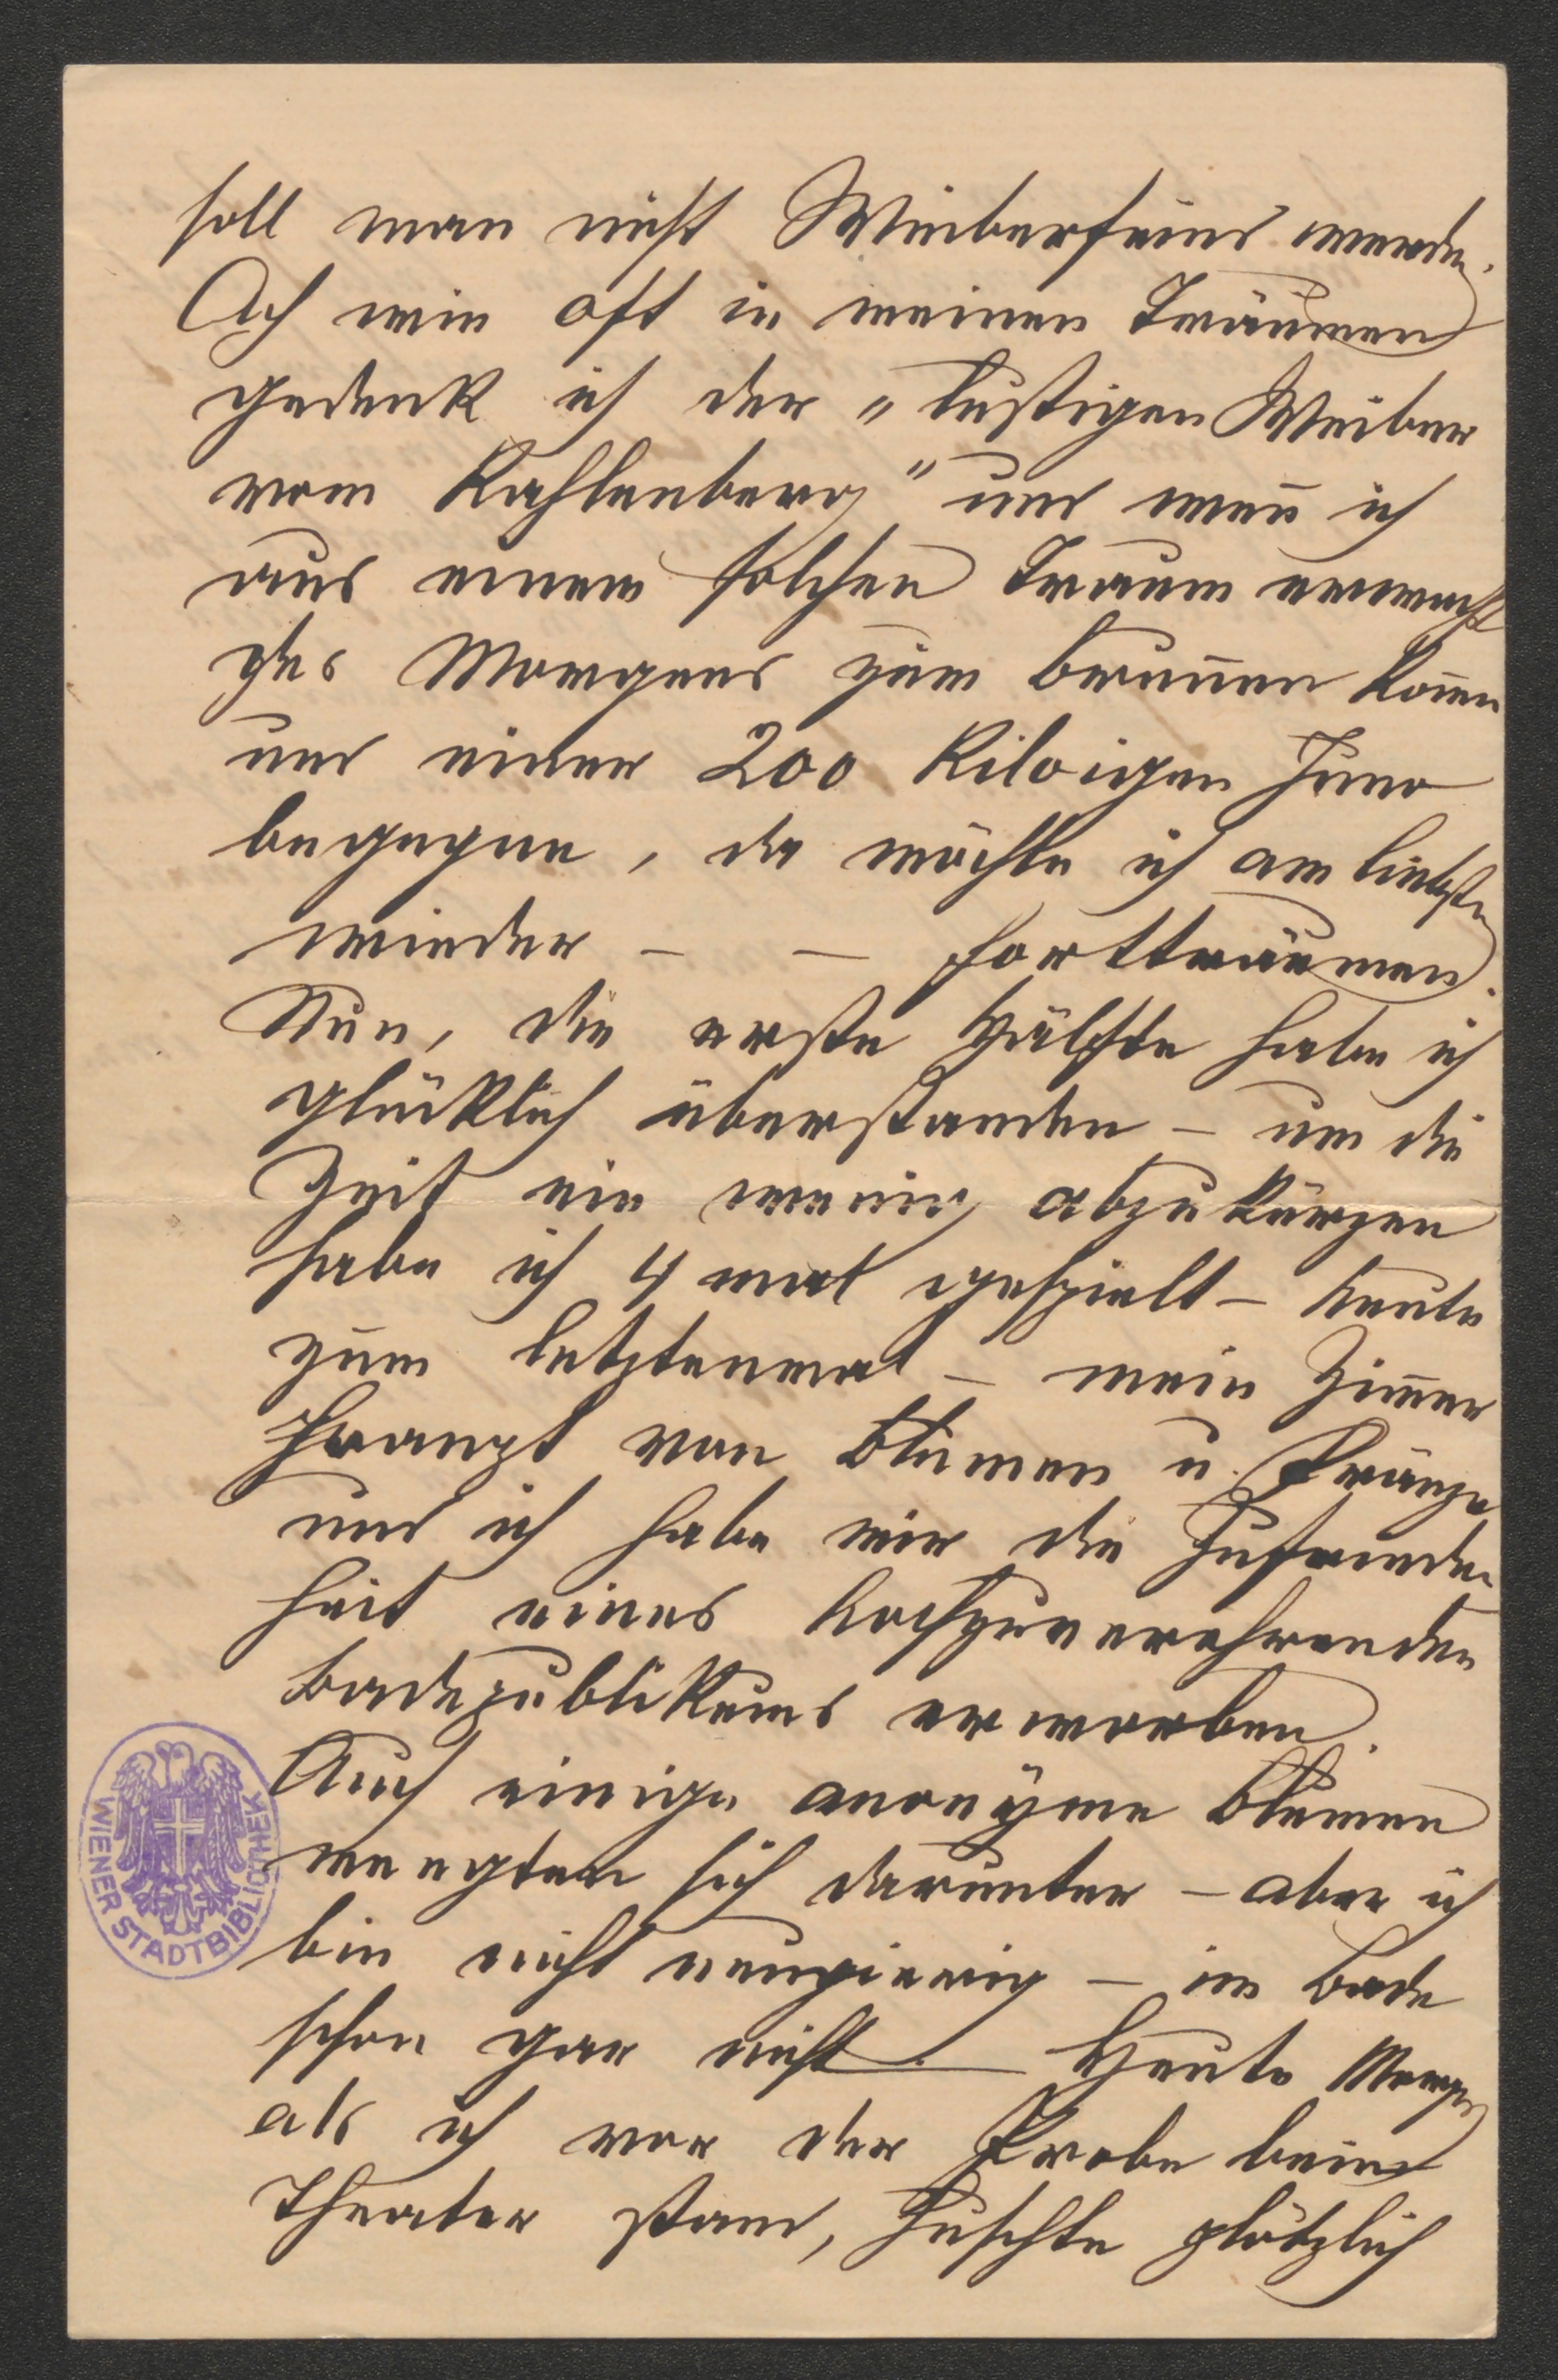 soll man nicht Weiberfeind werden.
Ach wie oft in meinen Träumen
gedenk ich der „lustigen Weiber
vom Kahlenberg" und wen̄ ich
aus einem solchen Traum erwacht
des Morgens zum Brun̄en kom̄en
und einer 200 Kiloigen Juno
begegne, da möchte ich am liebsten
wieder – – fortträumen.
Nun, die erste Hälfte habe ich
glücklich überstanden – um die
Zeit ein wenig abzukürzen
habe ich 4 mal gespielt – heute
zum letztenmal – mein Zim̄er
prangt von Blumen u. Kränze
und ich habe mir die Zufrieden
heit eines hochzuverehrenden
Badepublikums erworben.
Auch einige anonÿme Blumen
mengten sich darunter – aber ich
bin nicht neugierig – im Bade
schon gar nicht. Heute Morgen
als ich vor der Probe beim
Theater stand, huschte plötzlich
WIENER STADTBIBLIOTHEK